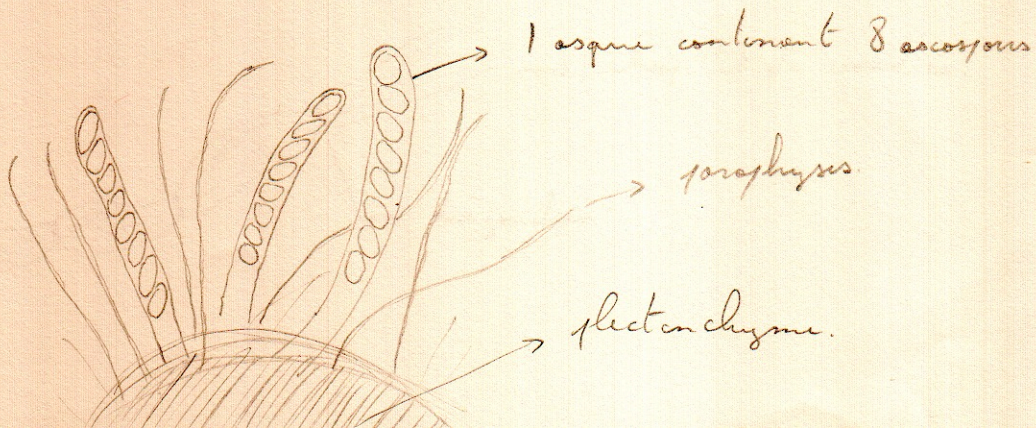 1 asque contenant 8 ascospores
paraphyses
plectenchyme.